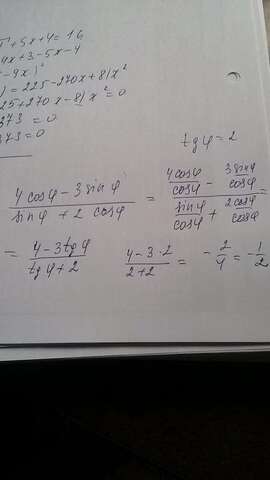 + 5x + 4 = 16
9x + 3 - 5x - 4
- 9x)²
) = 225 - 270x + 81x²
25 + 270x - 81x² = 0
373 = 0
373 = 0
tg φ = 2
(4 cos φ - 3 sin φ) / (sin φ + 2 cos φ) = (4 cos φ / cos φ - 3 sin φ / cos φ) / (sin φ / cos φ + 2 cos φ / cos φ) =
= (4 - 3 tg φ) / (tg φ + 2)   (4 - 3 · 2) / (2 + 2) = - 2/4 = - 1/2